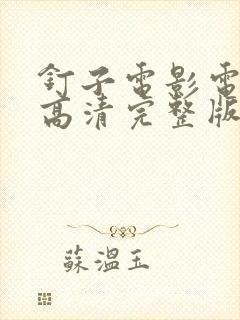 釘子電影電
高清完整版
蘇溫玉